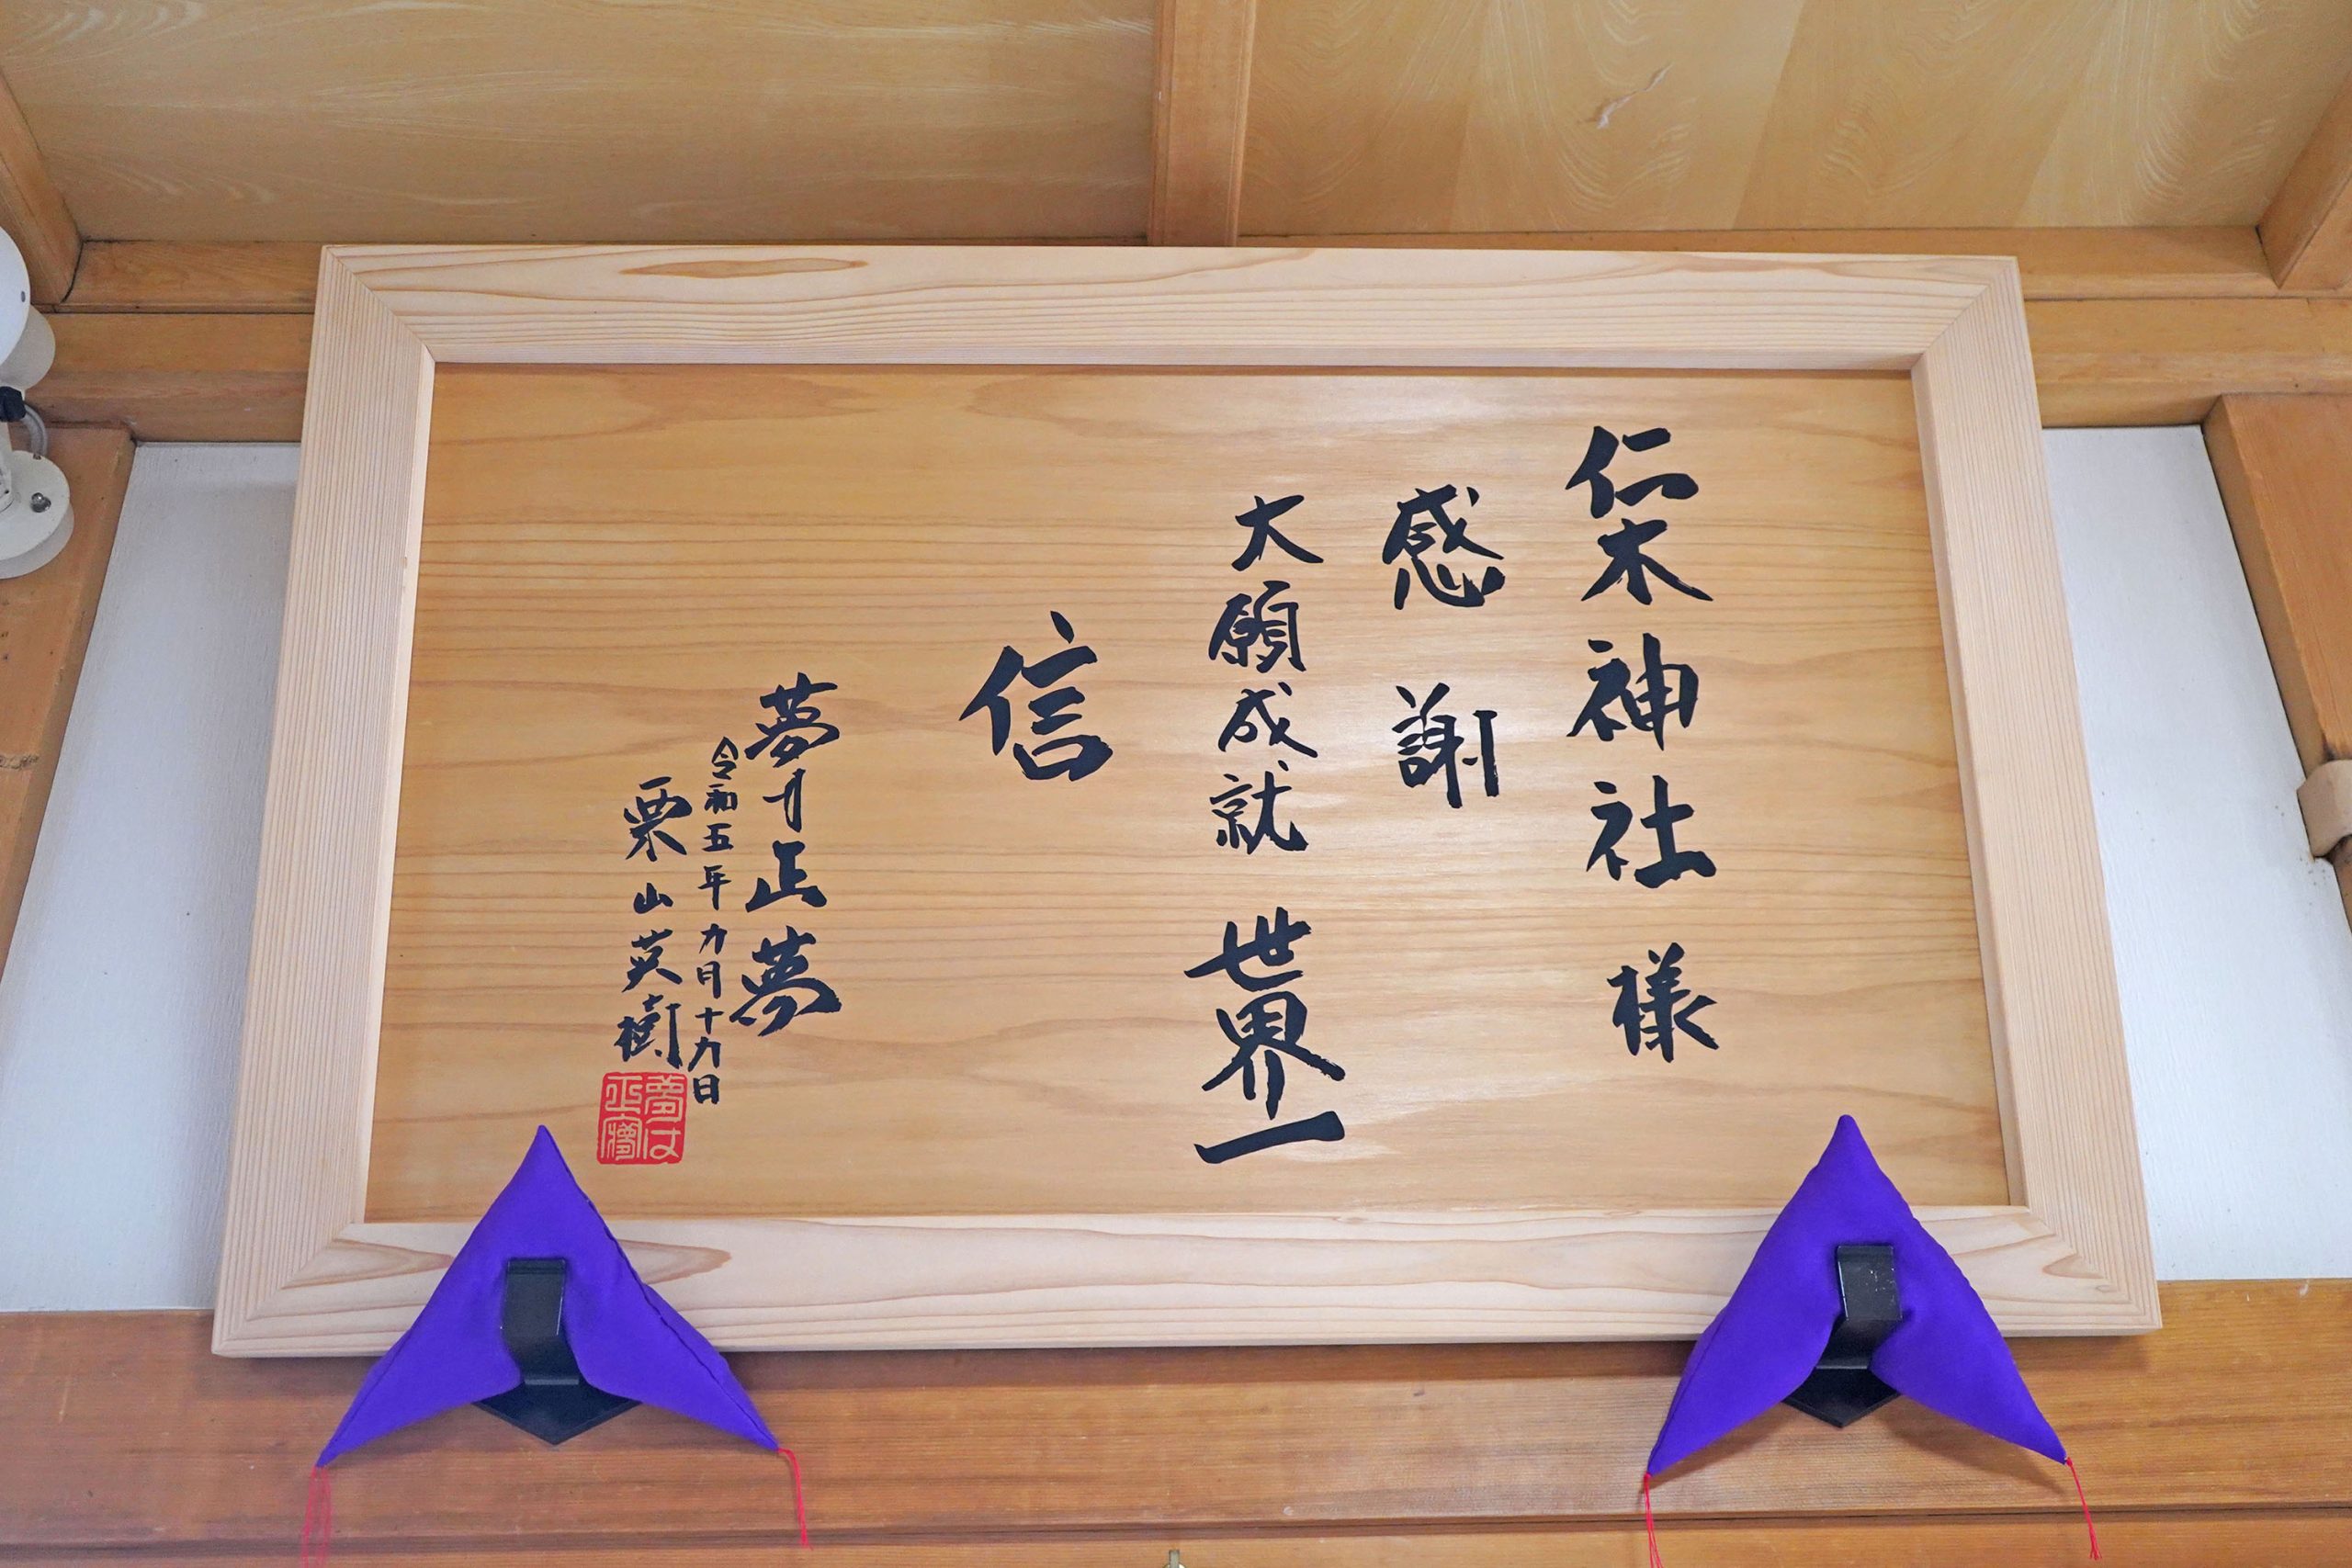 仁木神社 様
感謝
大願成就 世界一
信
夢は正夢
令和五年九月十九日
栗山英樹
夢は正夢